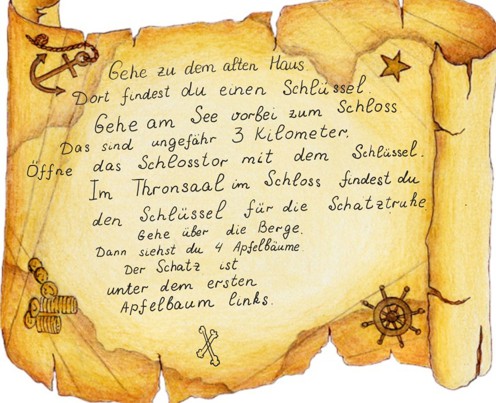 Gehe zu dem alten Haus
Dort findest du einen Schlüssel.
Gehe am See vorbei zum Schloss
Das sind ungefähr 3 Kilometer.
Öffne das Schlosstor mit dem Schlüssel.
Im Thronsaal im Schloss findest du
den Schlüssel für die Schatztruhe
Gehe über die Berge.
Dann siehst du 4 Apfelbäume.
Der Schatz ist
unter dem ersten
Apfelbaum links.